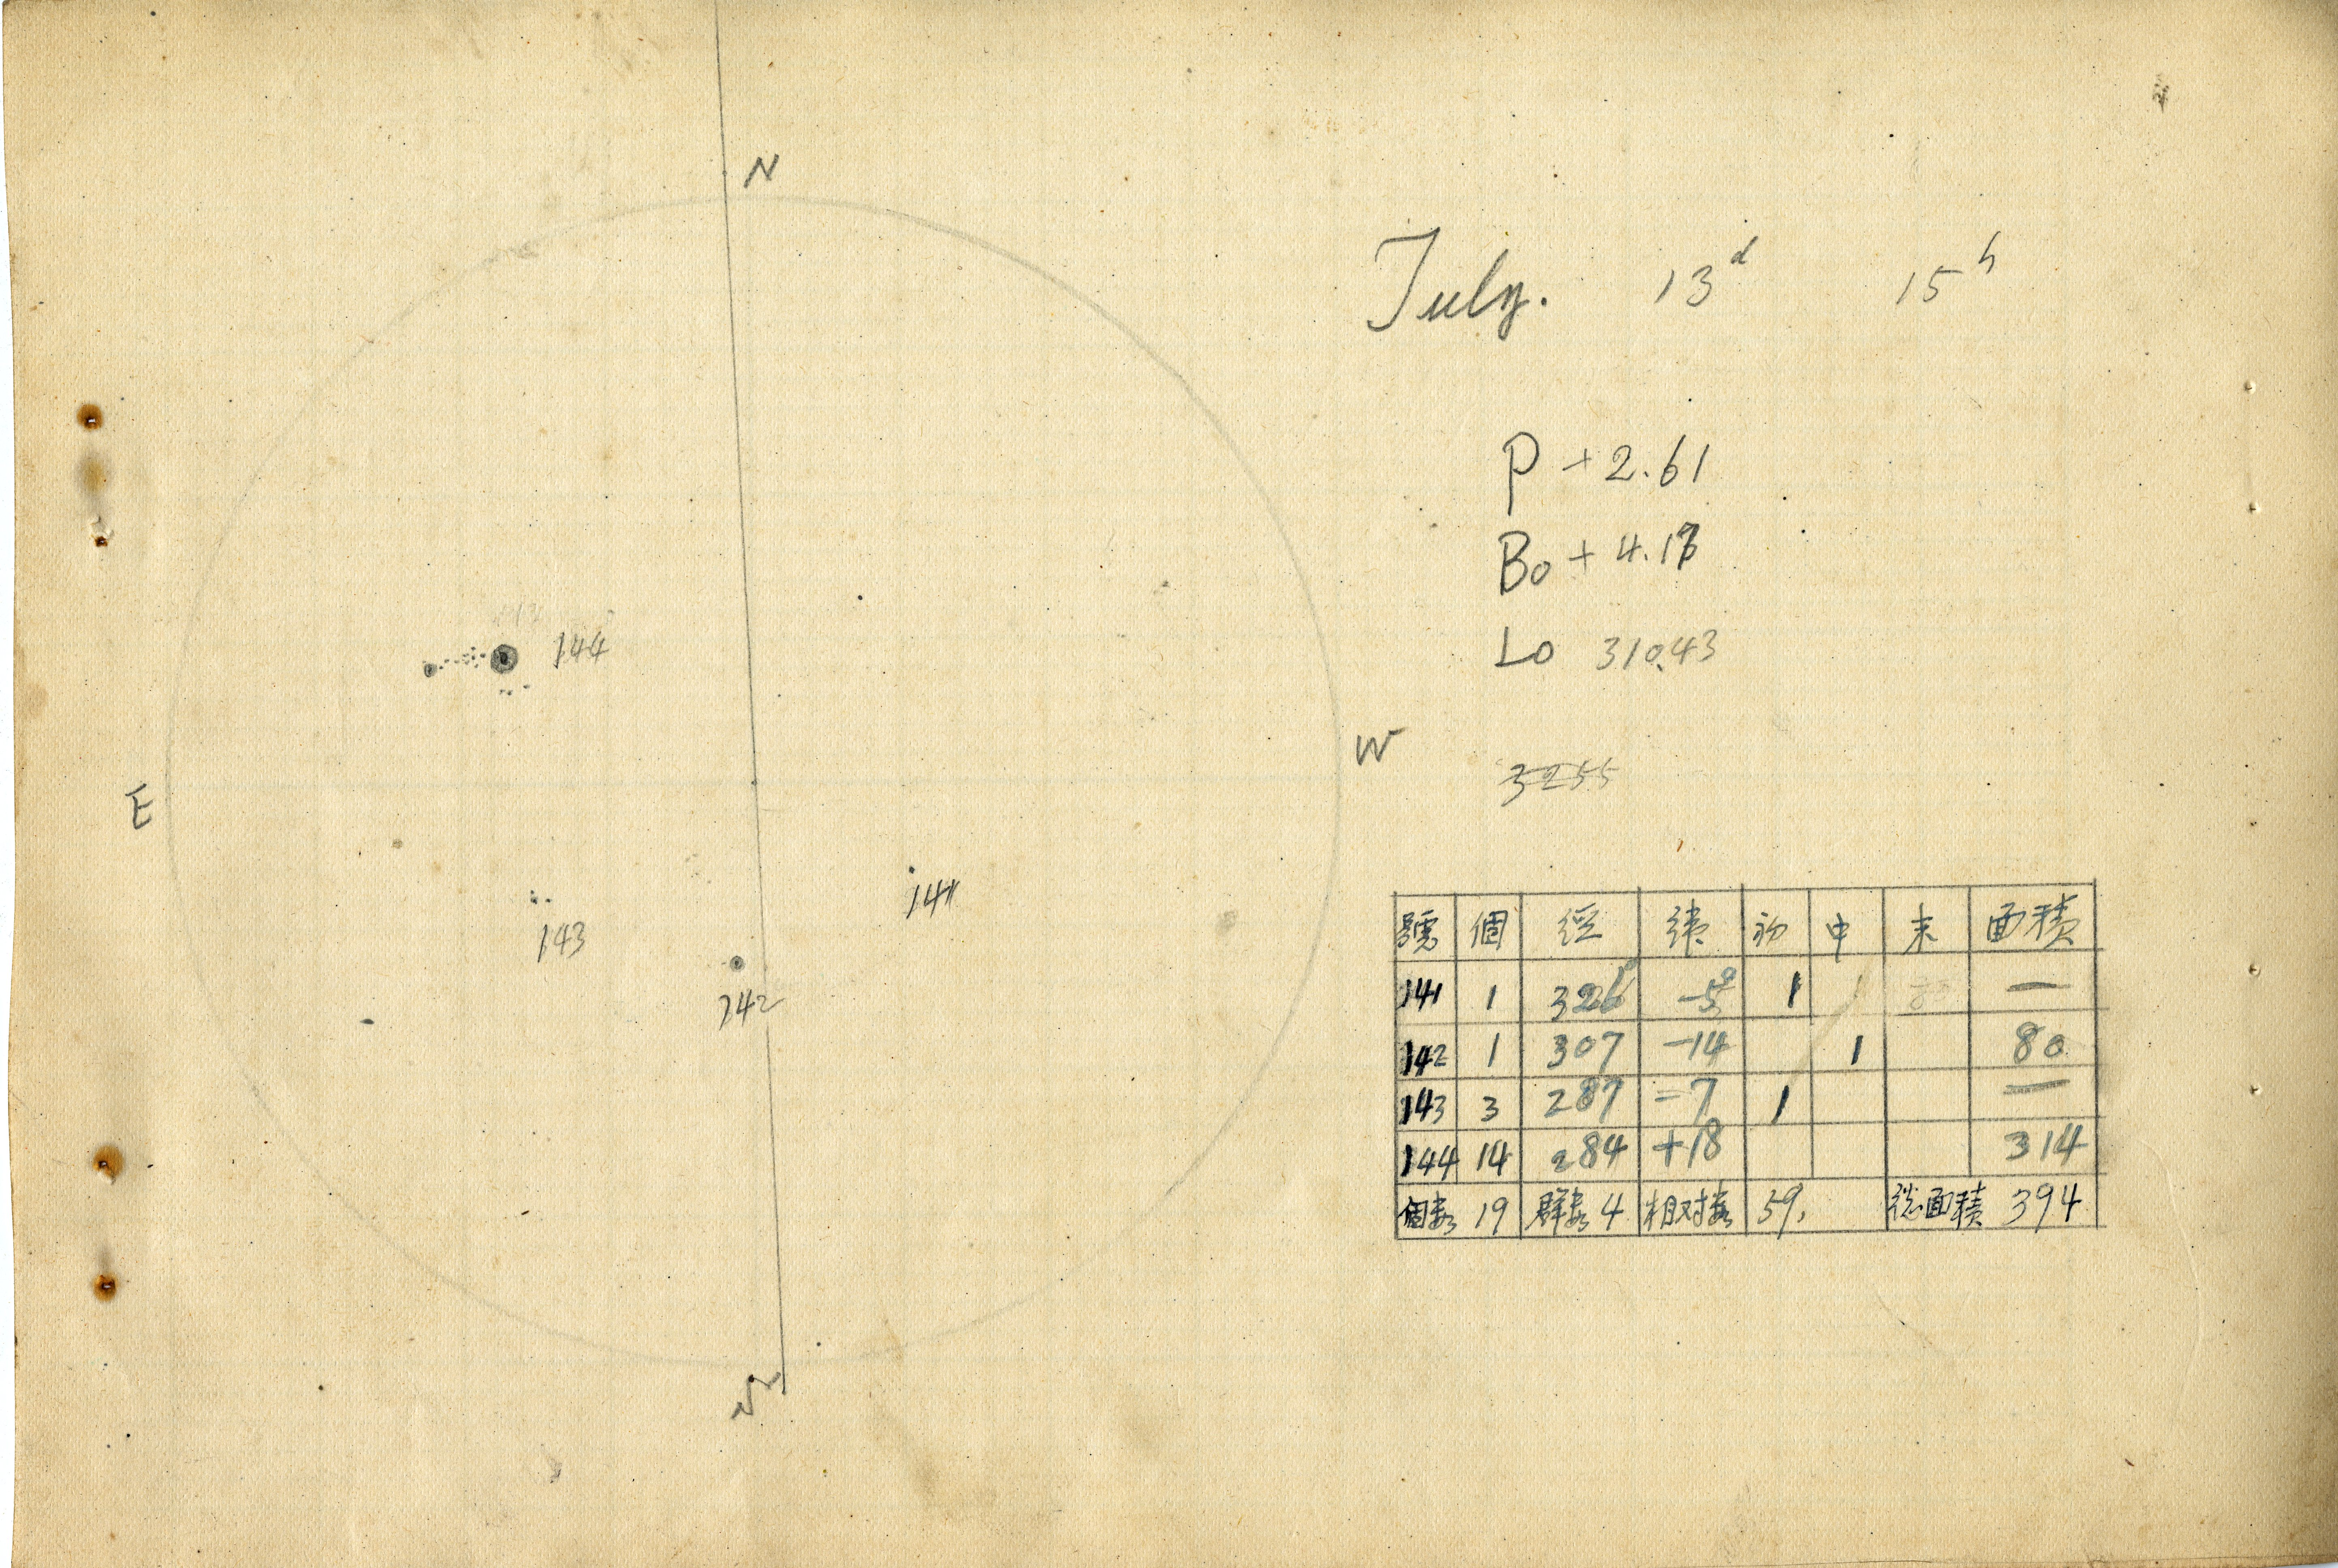 N
July. 13d 15h
P +2.61
Bo + 4.13
144
Lo 310.43
W
3255
E
141
143
142
號 個 経 緯 初 中 末 面積
141 1 326° -5° 1 —
142 1 307 -14 1 80
143 3 287 -7 1 —
144 14 284 +18 314
個数 19 群数 4 相対数 59. 総面積 394